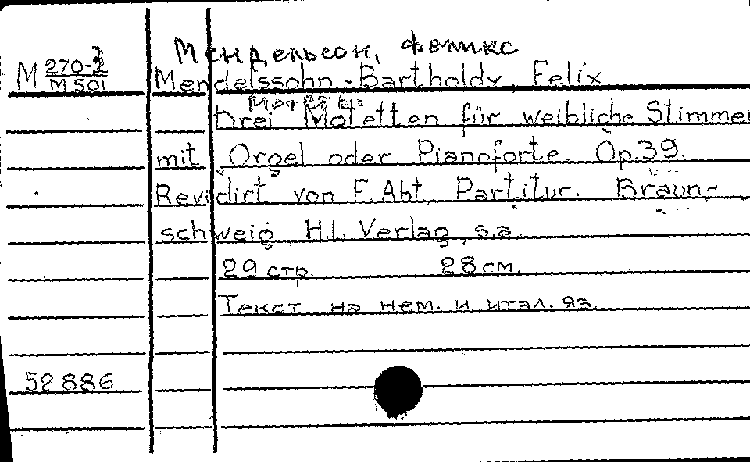 Мендельсон, Феликс
M 270-2
M501
Mendelssohn-Bartholdy, Felix
Drei Motetten für weibliche Stimmen
mit Orgel oder Pianoforte. Op.39.
Revidirt von F. Abt. Partitur. Braun-
schweig H.L. Verlag, s.a.
29 стр. 28 см.
Текст на нем. и итал. яз.
52886